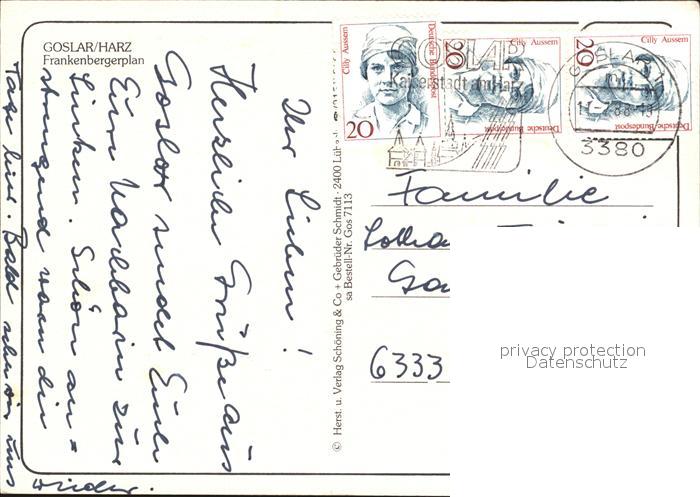 GOSLAR/HARZ
Frankenbergerplan
Ihr Lieben!
Herzliche Grüße aus
Goslar sendet Euch
Eure Nachbarin zur
Linken. Schön an=
strengend waren die
Tage hier. Bald sehen wir uns
wieder.
© Herst. u. Verlag Schöning & Co + Gebrüder Schmidt · 2400
sa Bestell-Nr. Gos 7113
Cilly Aussem
Deutsche Bundespost
20
Cilly Aussem
Deutsche Bundespost
20
Cilly Aussem
Deutsche Bundespost
20
GOSLAR
Kaiserstadt am Harz
GOSLAR 1
3380
Familie
6333
privacy protection
Datenschutz